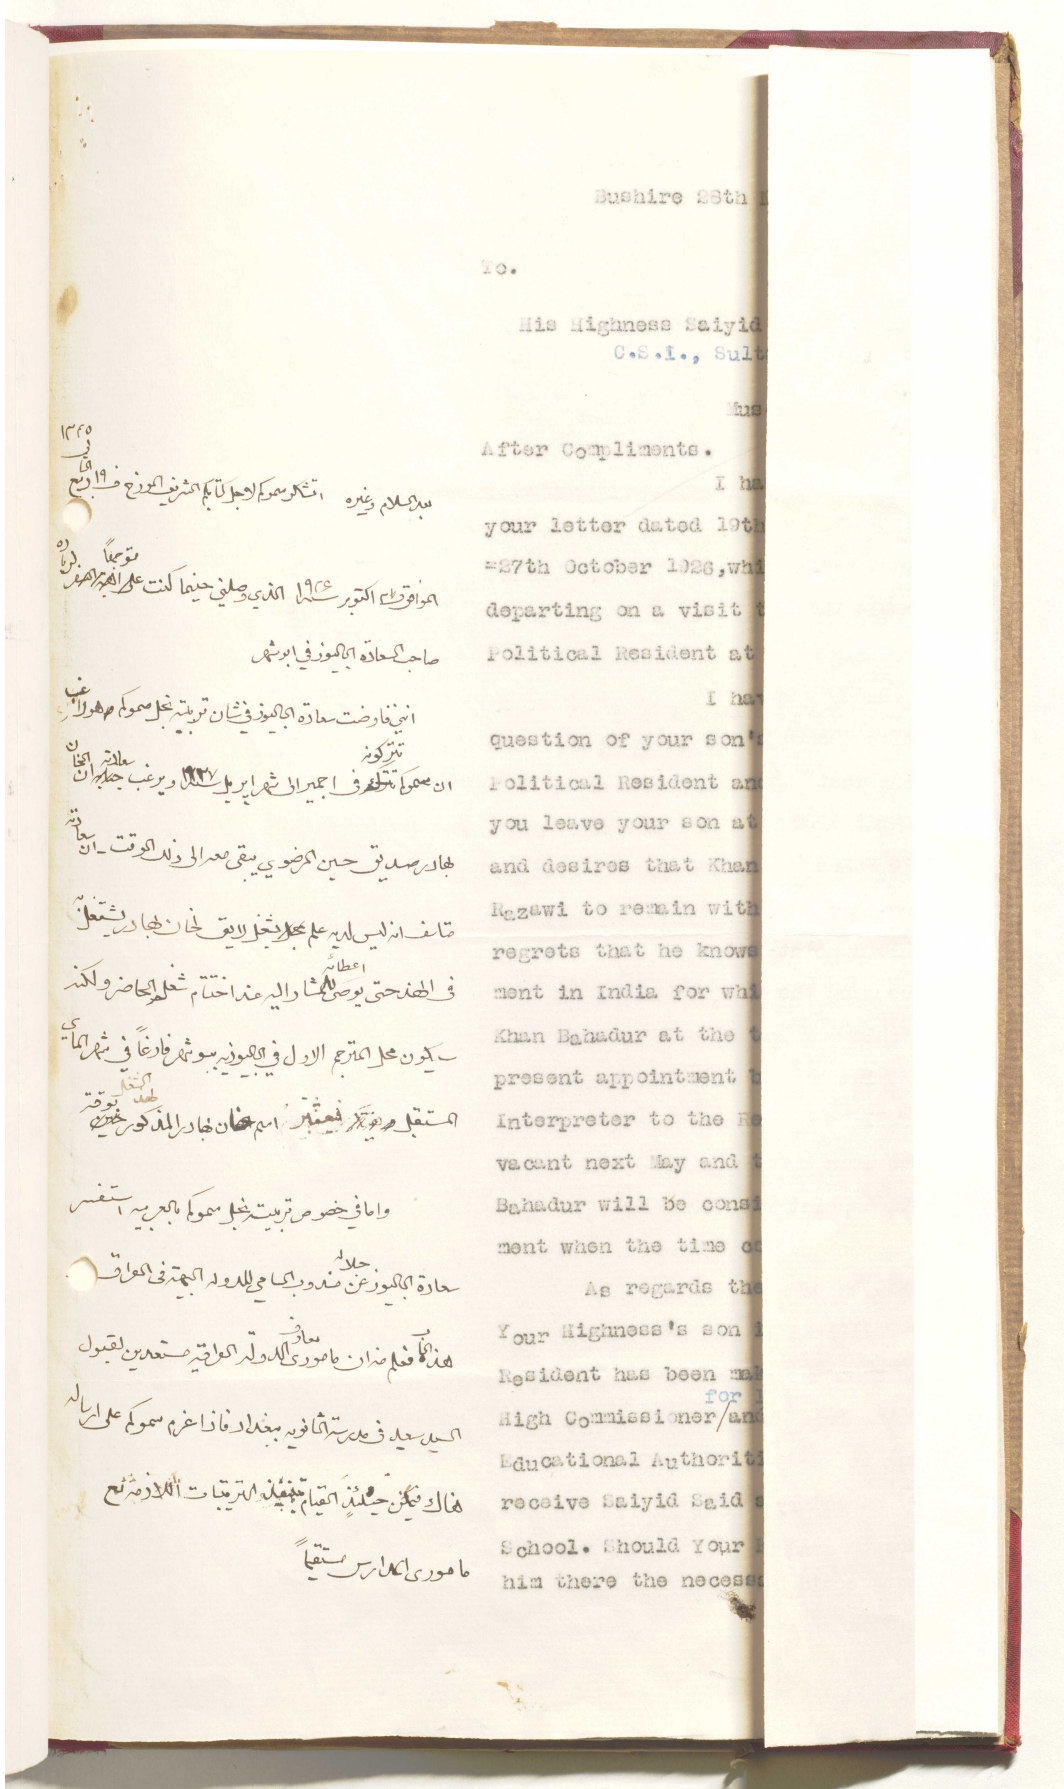 Bushire 28th
To.
His Highness Saiyid
C.S.I., Sult
Mus
After Compliments.
I ha
your letter dated 19th
=27th October 1926,whi
departing on a visit t
Political Resident at
I hav
question of your son's
Political Resident and
you leave your son at
and desires that Khan
Razawi to remain with
regrets that he knows
ment in India for whi
Khan Bahadur at the t
present appointment b
Interpreter to the Re
vacant next May and t
Bahadur will be consi
ment when the time co
As regards the
Your Highness's son i
Resident has been mak
for
High Commissioner/and
Educational Authoriti
receive Saiyid Said
School. Should Your
him there the necessa
١٣٤٥
بعد السلام وغيره اتشكر سموكم لاجل كتابكم الشريف المورخ في ١٩ ربيع الثاني
الموافق ٢٧ اكتوبر سنة ١٩٢٦ الذي وصلني حينما كنت متوجهاً
صاحب السعادة الباليوز في ابوشهر
انني فاوضت سعادة الباليوز في شان تربية نجل سموكم
تتركونه
ان سموكم في اجمير الى شهر ابريل سنة ١٩٢٧ ويرغب سعادته ان الخان
بهادر صديق حسين الرضوي يبقى معه الى ذلك الوقت - ان سعادته
متاسف انه ليس لديه علم بمحل شغل لايق لخان بهادر
اعطائه
في الهند حتى يوصى للمشار اليه عند اختتام شغله الحاضر ولكنه
سيكون محل المترجم الاول في الباليوزيه ببوشهر فارغاً في شهر الماي
المستقبل اسم خان بهادر المذكور لهذا الشغل
واما في خصوص تربية نجل سموكم بالعربيه استفسر
جلالة
سعادة الباليوز عن مندوب السامي للدولة البهية في العراق
معارف
هذا الباب فعلم منه ان مامورى الدولة العراقية مستعدين لقبول
السيد سعيد في مدرسة الثانويه ببغداد فاذا عزم سموكم على ارساله
هناك فيمكن حينئذٍ القيام بتنفيذ الترتيبات اللازمة مع
مامورى المدارس مستقيماً